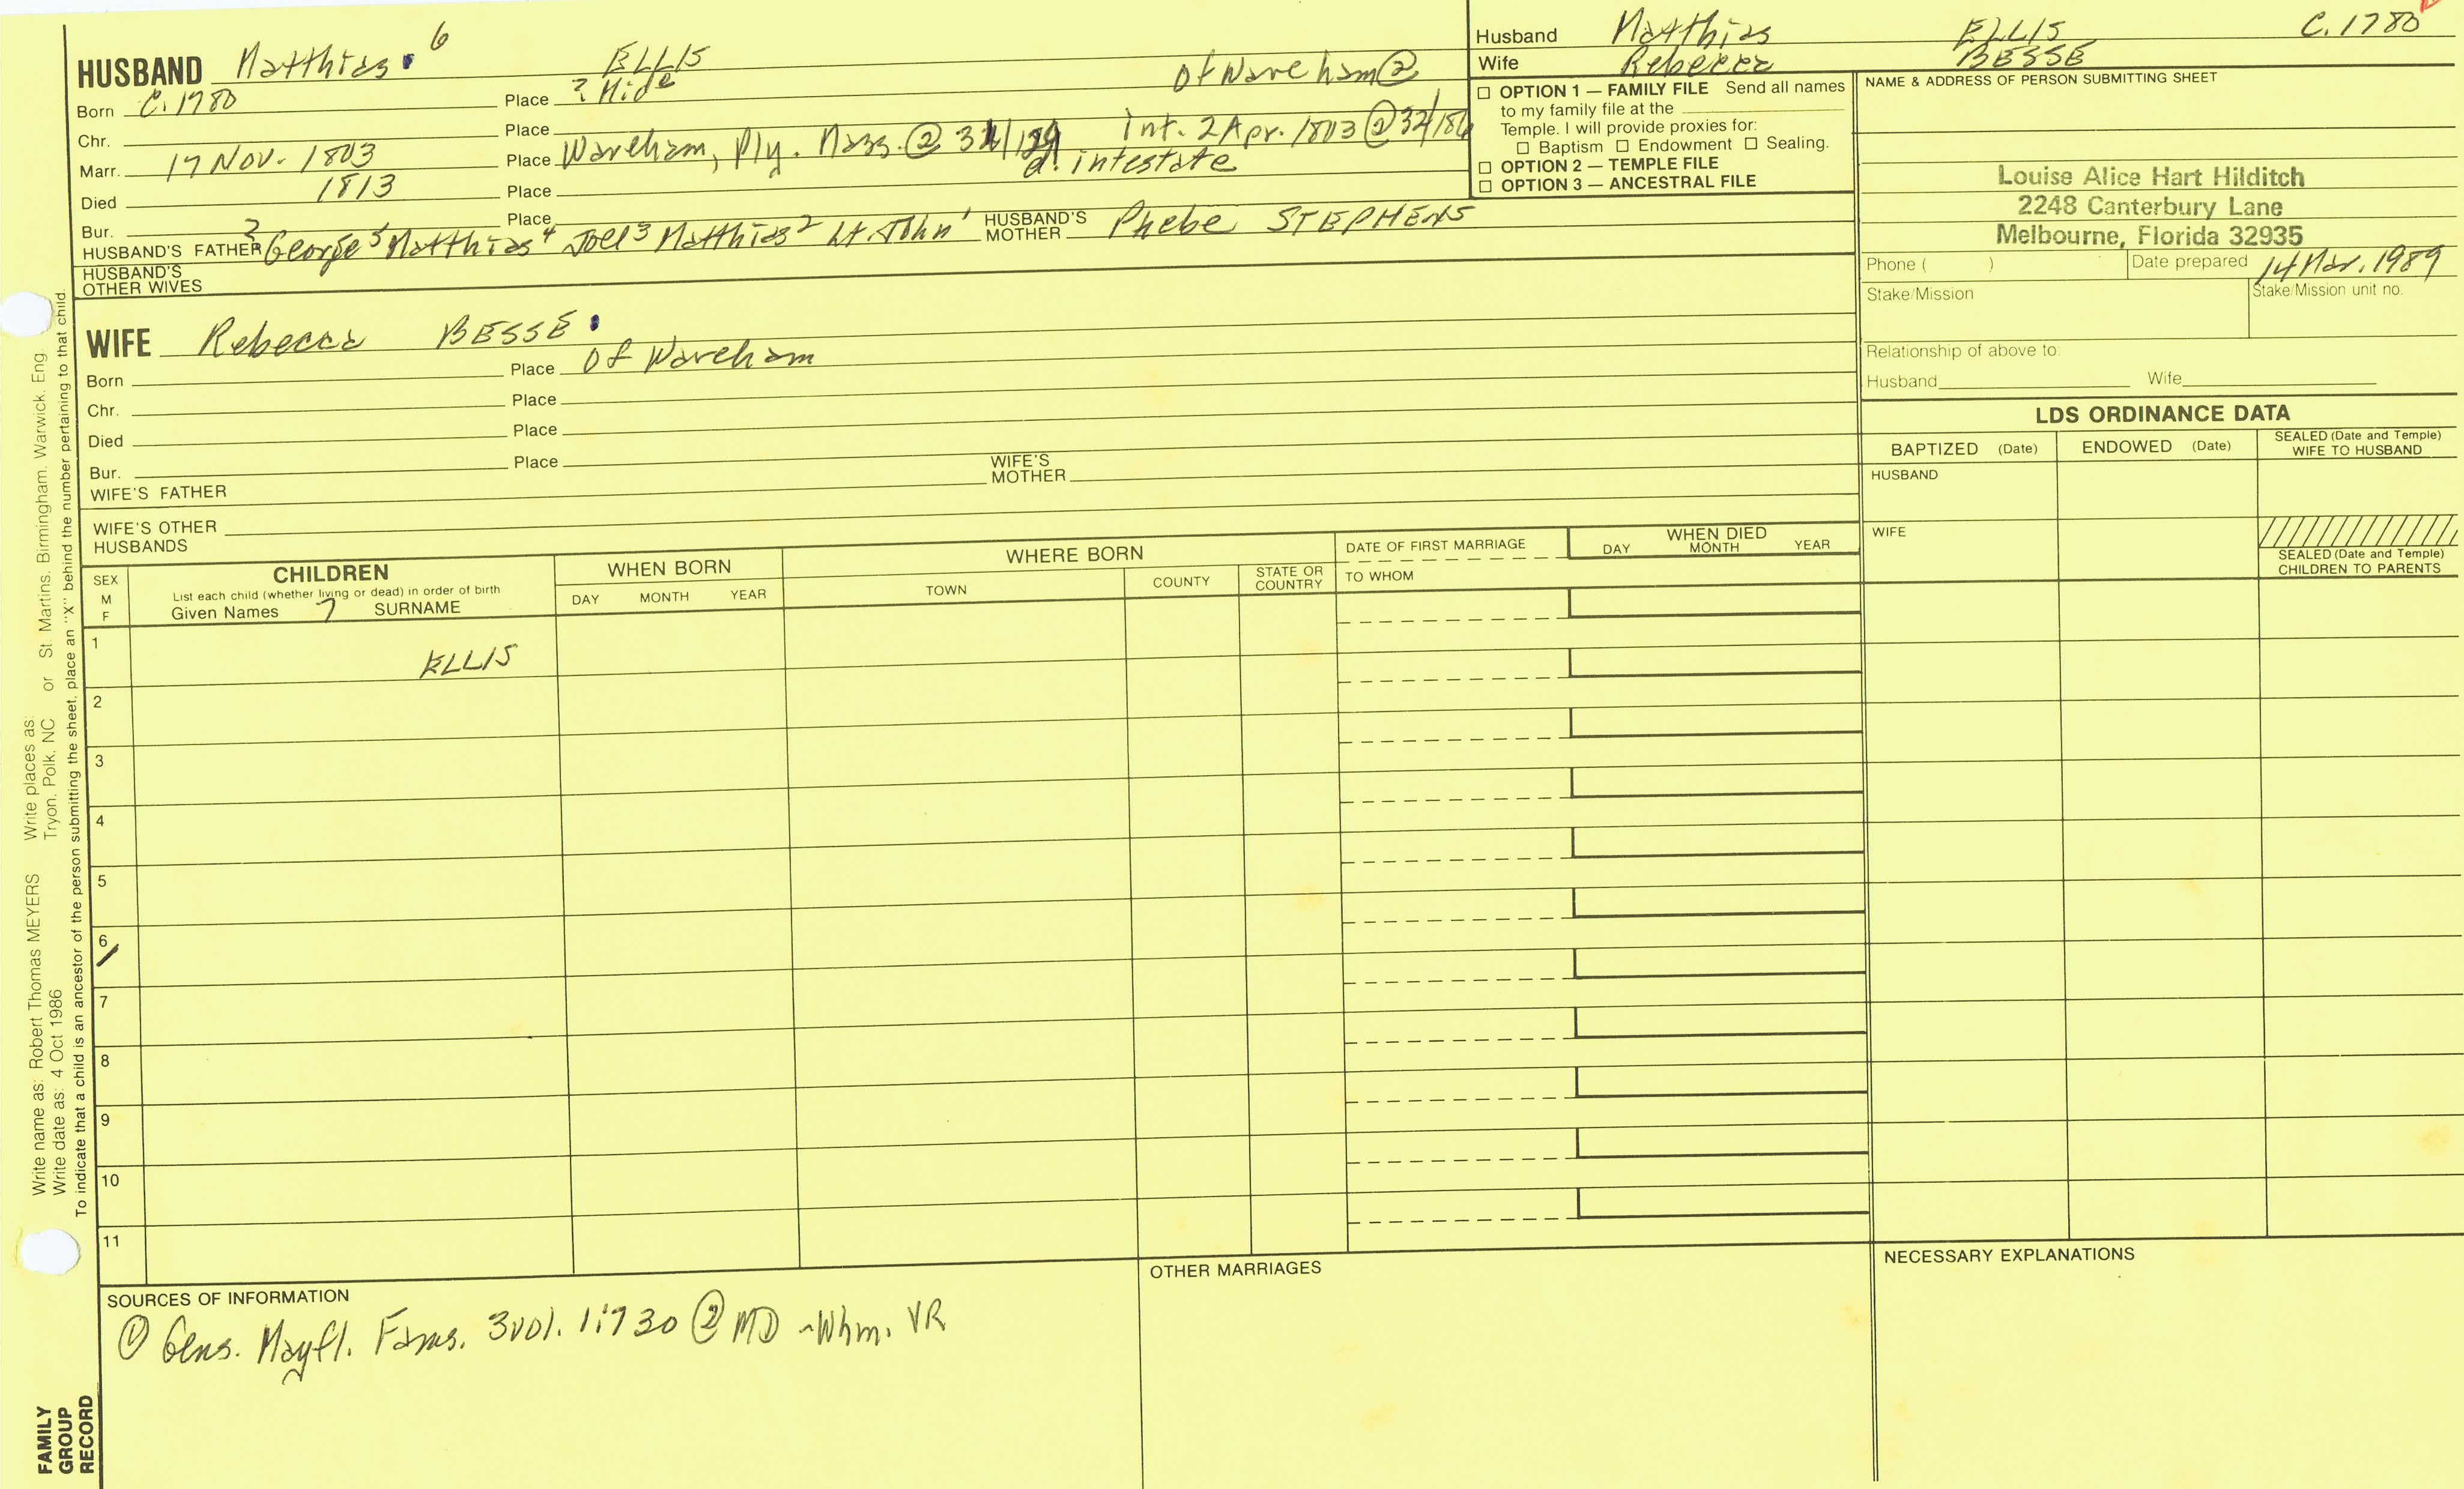 HUSBAND Matthias 6 ELLIS
Born C. 1780 Place ? Mide of Wareham @
Chr. Place
Marr. 17 Nov. 1803 Place Wareham, Ply. Mass. @ int. 2 Apr. 1803 @
Died 1813 Place d. intestate
Bur. Place
HUSBAND'S FATHER ? George 5 Matthias 4 Joel 3 Matthias 2 Lt. John 1 HUSBAND'S MOTHER Phebe STEPHENS
HUSBAND'S OTHER WIVES
WIFE Rebecca BESSE
Born Place of Wareham
Chr. Place
Died Place
Bur. Place
WIFE'S FATHER WIFE'S MOTHER
WIFE'S OTHER HUSBANDS
Husband Matthias ELLIS C. 1780
Wife Rebecca BESSE
☐ OPTION 1 — FAMILY FILE Send all names
to my family file at the
Temple. I will provide proxies for:
☐ Baptism ☐ Endowment ☐ Sealing.
☐ OPTION 2 — TEMPLE FILE
☐ OPTION 3 — ANCESTRAL FILE
NAME & ADDRESS OF PERSON SUBMITTING SHEET
Louise Alice Hart Hilditch
2248 Canterbury Lane
Melbourne, Florida 32935
Phone ( ) Date prepared 14 Mar. 1989
Stake/Mission Stake/Mission unit no.
Relationship of above to:
Husband Wife
LDS ORDINANCE DATA
BAPTIZED (Date) ENDOWED (Date) SEALED (Date and Temple) WIFE TO HUSBAND
HUSBAND
WIFE
SEALED (Date and Temple)
CHILDREN TO PARENTS
SEX
M
F
CHILDREN
List each child (whether living or dead) in order of birth
Given Names 7 SURNAME
WHEN BORN
DAY MONTH YEAR
WHERE BORN
TOWN COUNTY STATE OR COUNTRY
DATE OF FIRST MARRIAGE
TO WHOM
WHEN DIED
DAY MONTH YEAR
1 ELLIS
2
3
4
5
6
7
8
9
10
11
SOURCES OF INFORMATION
① Gens. Mayfl. Fams. 3vol. 1:730 ② MD - Whm. VR
OTHER MARRIAGES
NECESSARY EXPLANATIONS
FAMILY
GROUP
RECORD
Write name as: Robert Thomas MEYERS Write places as: St. Martins, Birmingham, Warwick, Eng.
Write date as: 4 Oct 1986 Tryon, Polk, NC or
To indicate that a child is an ancestor of the person submitting the sheet, place an "X" behind the number pertaining to that child.